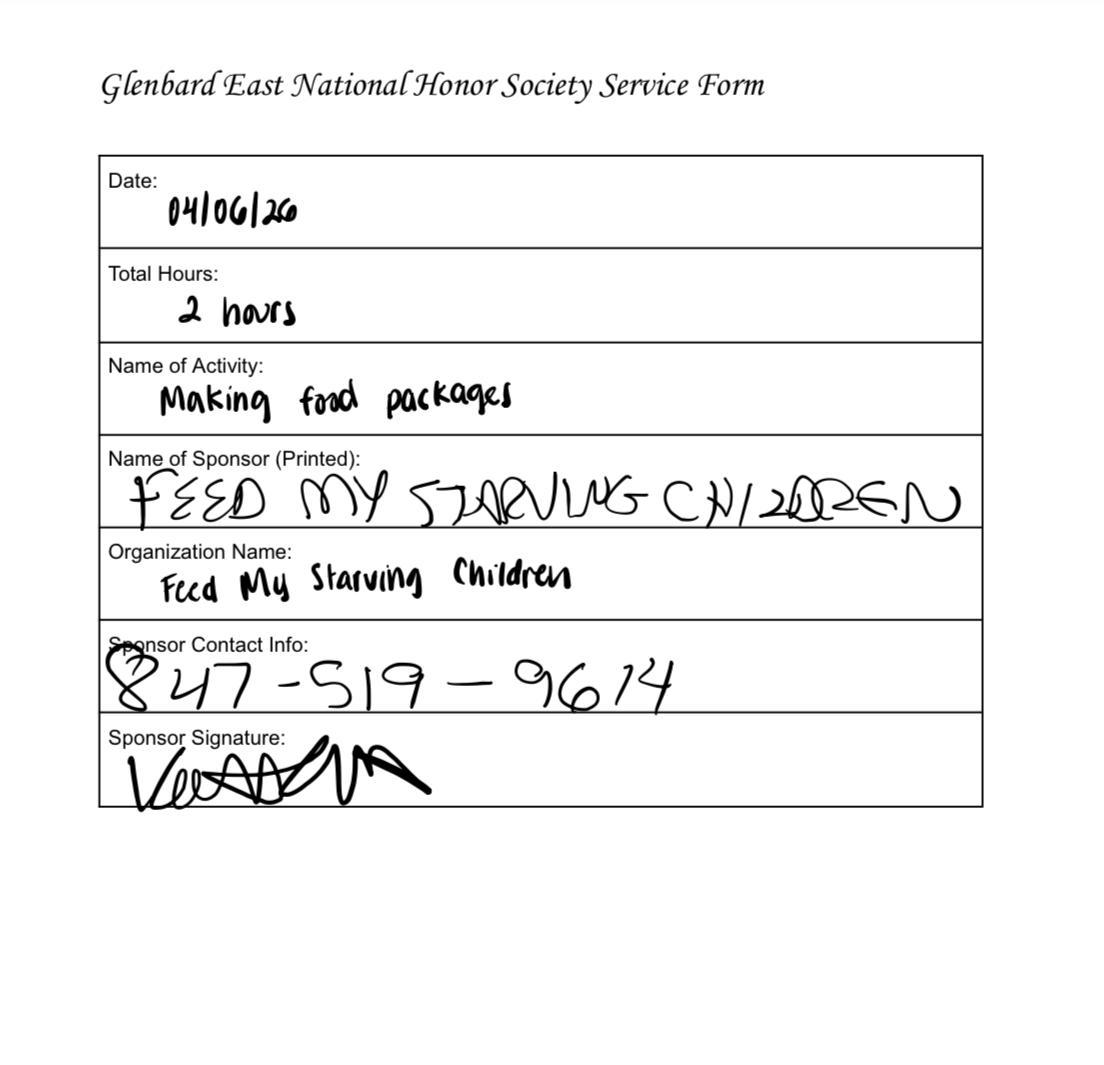 Glenbard East National Honor Society Service Form
Date:
04/06/26
Total Hours:
2 hours
Name of Activity:
Making food packages
Name of Sponsor (Printed):
FEED MY STARVING CHILDREN
Organization Name:
Feed My Starving Children
Sponsor Contact Info:
847-519-9614
Sponsor Signature: